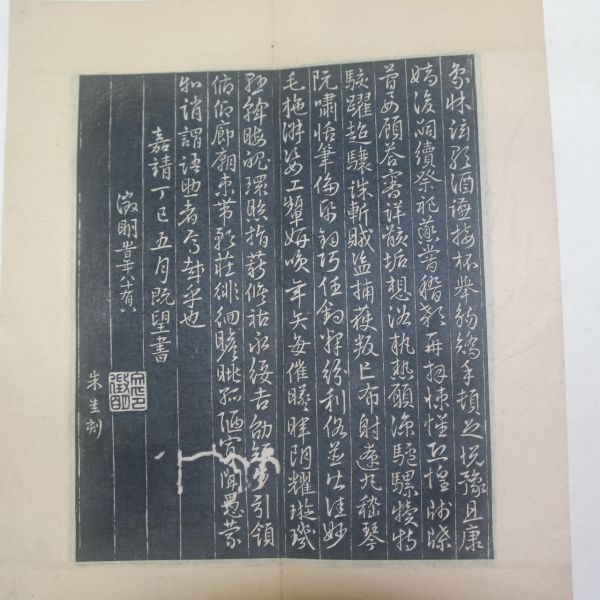 象床弦歌酒讌接杯舉觴矯手頓足悅豫且康
嫡後嗣續祭祀蒸嘗稽顙再拜悚懼恐惶牋牒
簡要顧答審詳骸垢想浴執熱願涼驢騾犢特
駭躍超驤誅斬賊盜捕獲叛亡布射遼丸嵇琴
阮嘯恬筆倫紙鈞巧任釣釋紛利俗並皆佳妙
毛施淑姿工顰妍笑年矢每催曦暉朗耀璇璣
懸斡晦魄環照指薪修祜永綏吉劭矩步引領
俯仰廊廟束帶矜莊徘徊瞻眺孤陋寡聞愚蒙
等誚謂語助者焉哉乎也
嘉靖丁巳五月既望書
徵明時年八十有八
文徵明印
朱生刻